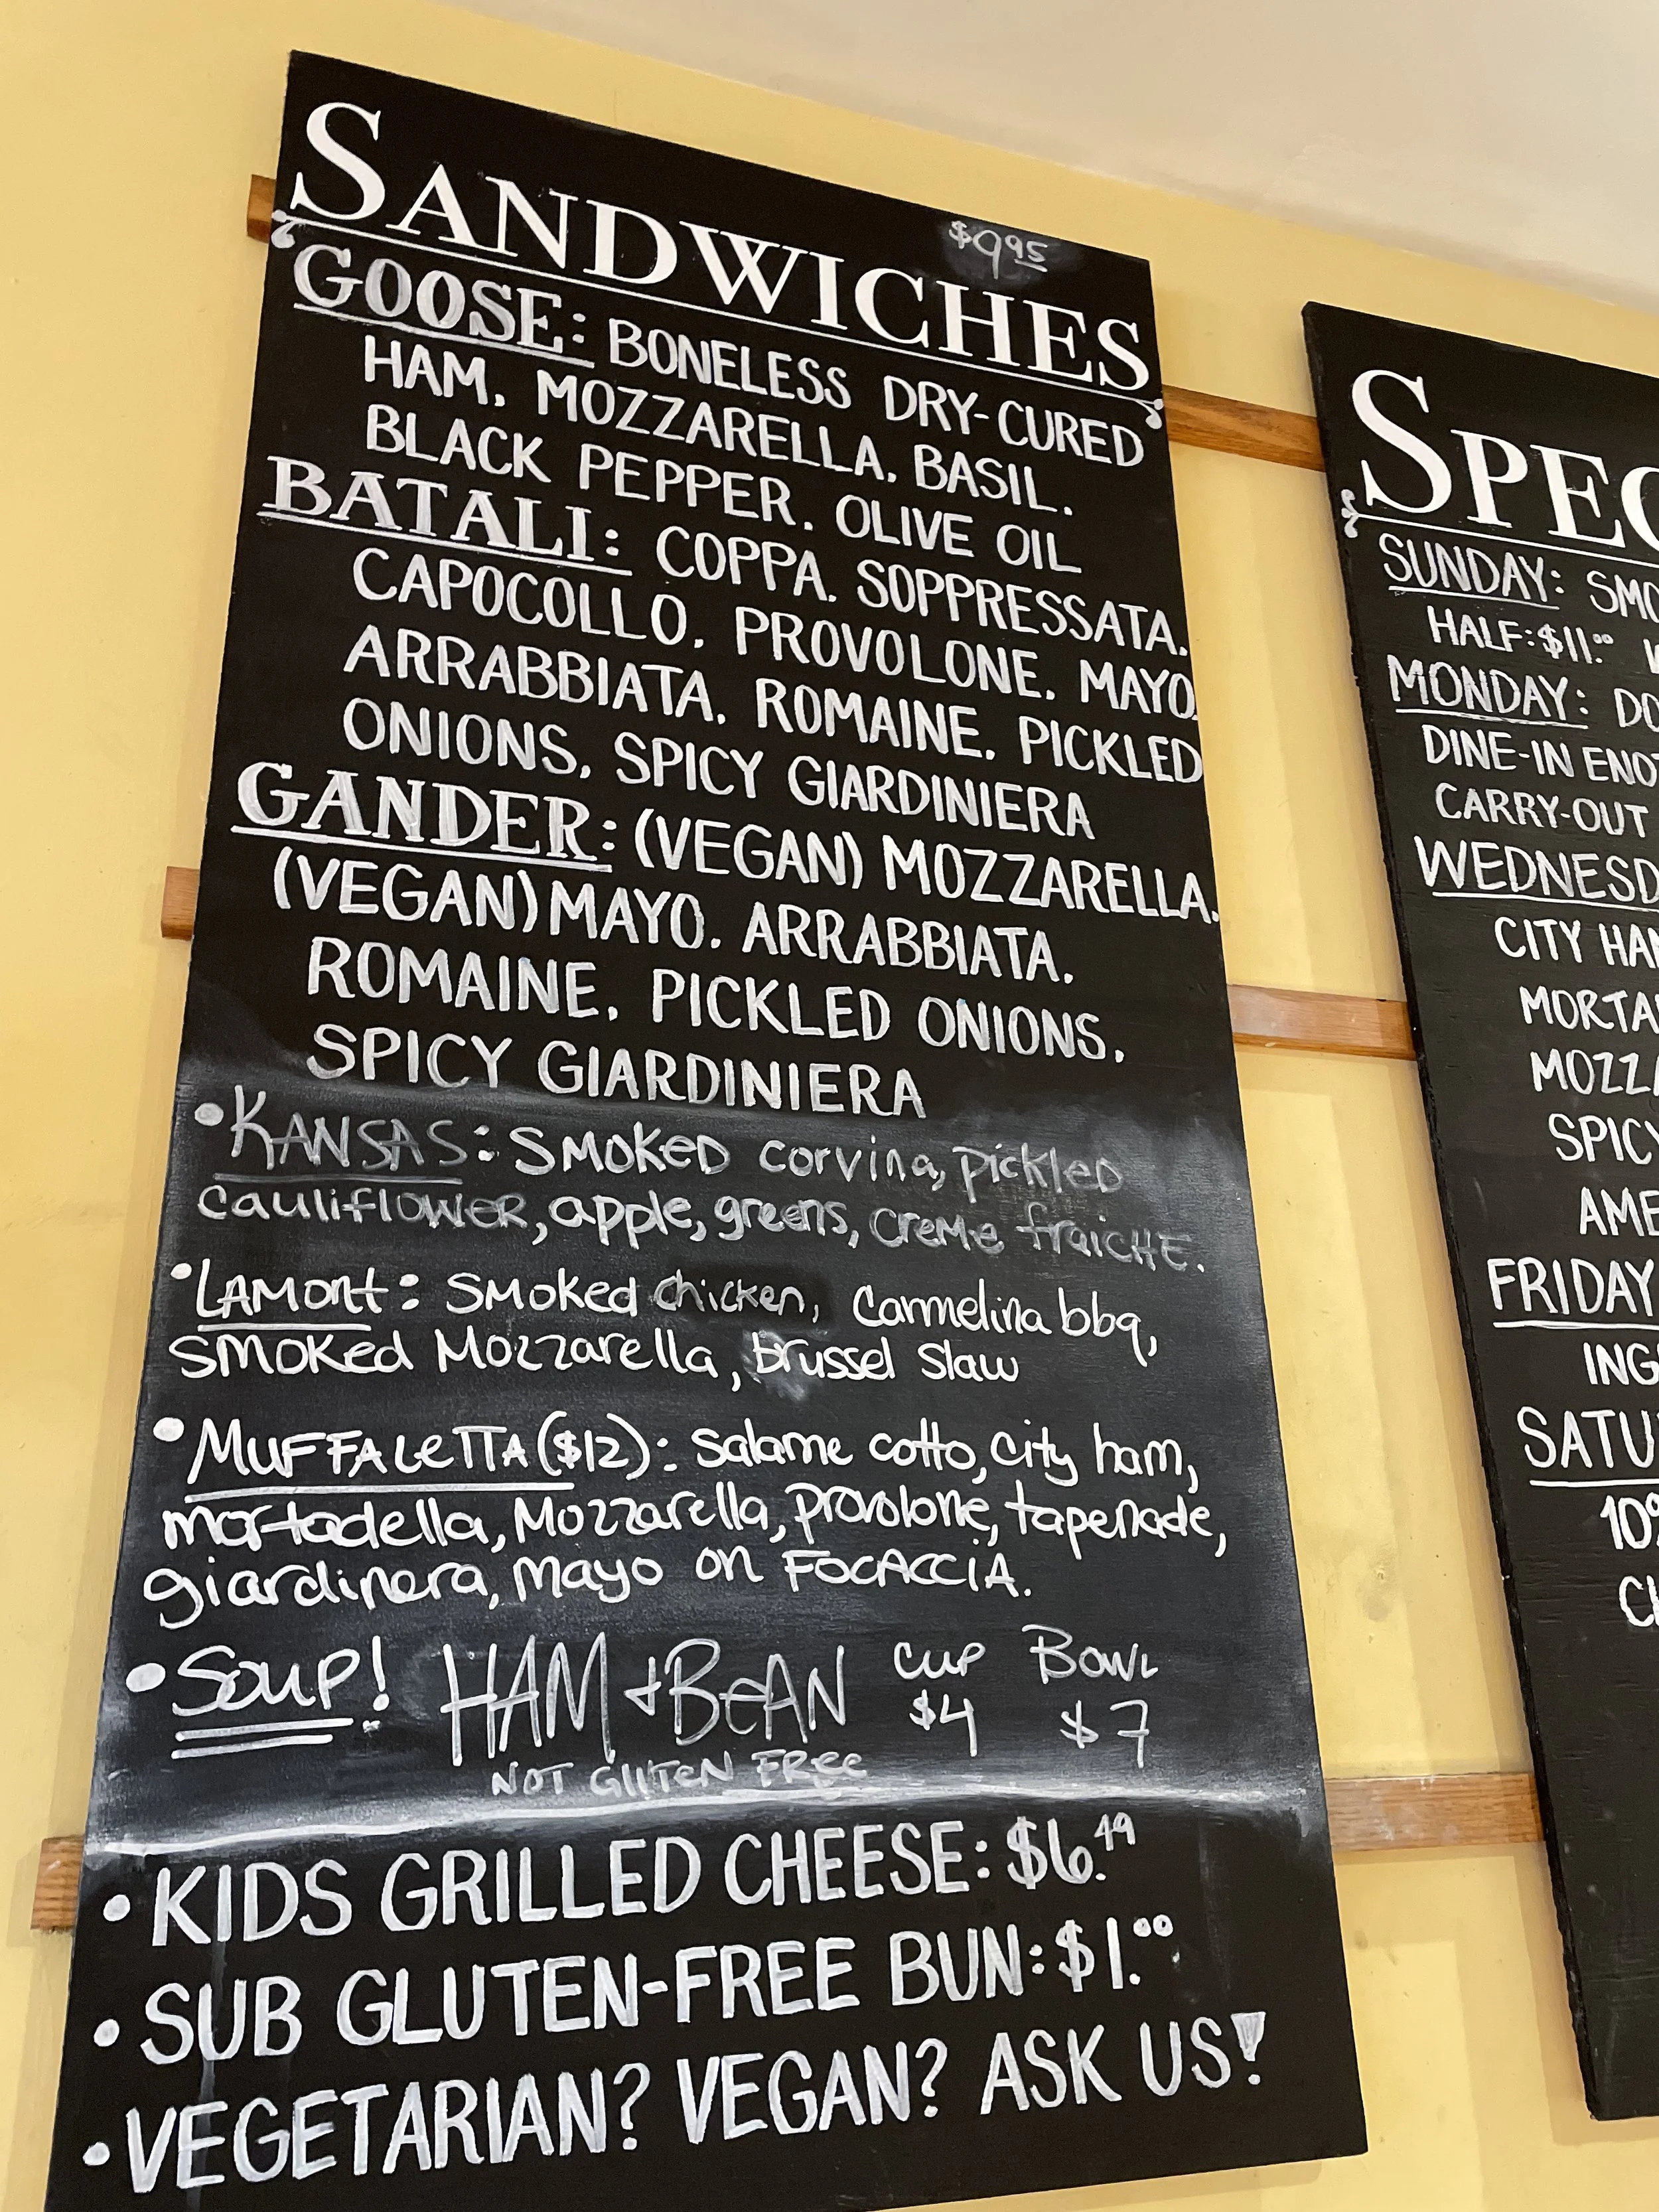 SANDWICHES
$9.95
GOOSE: BONELESS DRY-CURED
HAM, MOZZARELLA, BASIL,
BLACK PEPPER, OLIVE OIL
BATALI: COPPA, SOPPRESSATA,
CAPOCOLLO, PROVOLONE, MAYO,
ARRABBIATA, ROMAINE, PICKLED
ONIONS, SPICY GIARDINIERA
GANDER: (VEGAN) MOZZARELLA,
(VEGAN) MAYO, ARRABBIATA,
ROMAINE, PICKLED ONIONS,
SPICY GIARDINIERA
•KANSAS: SMOKED corvina, pickled
cauliflower, apple, greens, creme fraiche.
•LAMont: smoked chicken, Carmelina bbq,
smoked Mozzarella, brussel slaw
•MUFFALeTTA ($12): salame cotto, city ham,
mortadella, Mozzarella, provolone, tapenade,
giardinera, mayo on FOCACCIA.
•Soup! HAM + BeAN cup Bowl
$4 $7
NOT GLUTEN FREE
•KIDS GRILLED CHEESE: $6.49
•SUB GLUTEN-FREE BUN: $1.00
•VEGETARIAN? VEGAN? ASK US!
SPEC
SUNDAY: SMO
HALF: $11.00
MONDAY: DO
DINE-IN ENO
CARRY-OUT
WEDNESD
CITY HA
MORTA
MOZZ
SPICY
AME
FRIDAY
ING
SATU
10%